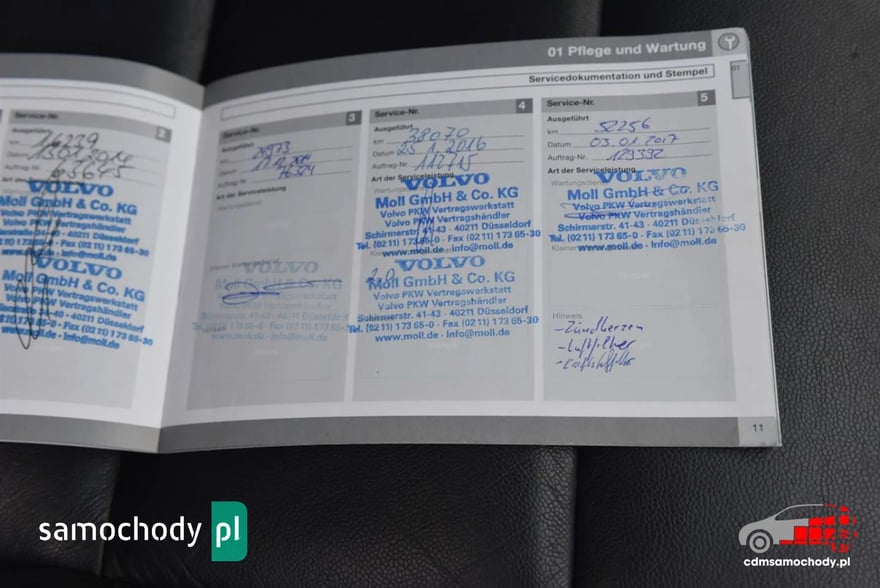 01 Pflege und Wartung
01
Servicedokumentation und Stempel
Service-Nr. 2
Ausgeführt
km 16239
Datum
Auftrag-Nr. 65645
Art der
VOLVO
Moll GmbH & Co. KG
Volvo PKW Vertragswerkstatt
Volvo PKW Vertragshändler
40211 Düsseldorf
Fax (02 11) 1 73 65-30
www.moll.de - info@moll.de
VOLVO
Moll GmbH & Co. KG
Volvo PKW Vertragswerkstatt
Volvo PKW Vertragshändler
40211 Düsseldorf
Fax (02 11) 1 73 65-30
www.moll.de - info@moll.de
Service-Nr. 3
Ausgeführt
km
Datum
Auftrag-Nr. 76324
Art der Serviceleistung
VOLVO
Moll GmbH & Co. KG
Schirmerstr. 41-43 - 40211 Düsseldorf
Tel. (02 11) 1 73 65-0 - Fax (02 11) 1 73 65-30
www.moll.de - info@moll.de
Service-Nr. 4
Ausgeführt
km 38070
Datum 25.1.2016
Auftrag-Nr. 112715
Art der Serviceleistung
VOLVO
Moll GmbH & Co. KG
Volvo PKW Vertragswerkstatt
Volvo PKW Vertragshändler
Schirmerstr. 41-43 - 40211 Düsseldorf
Tel. (02 11) 1 73 65-0 - Fax (02 11) 1 73 65-30
www.moll.de - info@moll.de
VOLVO
Moll GmbH & Co. KG
Volvo PKW Vertragswerkstatt
Volvo PKW Vertragshändler
Schirmerstr. 41-43 - 40211 Düsseldorf
Tel. (02 11) 1 73 65-0 - Fax (02 11) 1 73 65-30
www.moll.de - info@moll.de
Service-Nr. 5
Ausgeführt
km 52256
Datum 03.01.2017
Auftrag-Nr. 129392
Art der Serviceleistung
Wartungsdienst
VOLVO
Moll GmbH & Co. KG
Volvo PKW Vertragswerkstatt
Volvo PKW Vertragshändler
Schirmerstr. 41-43 - 40211 Düsseldorf
Tel. (02 11) 1 73 65-0 - Fax (02 11) 1 73 65-30
www.moll.de - info@moll.de
Hinweis
- Zündkerzen
- Luftfilter
- Kraftstoffilter
11
samochody pl
cdmsamochody.pl